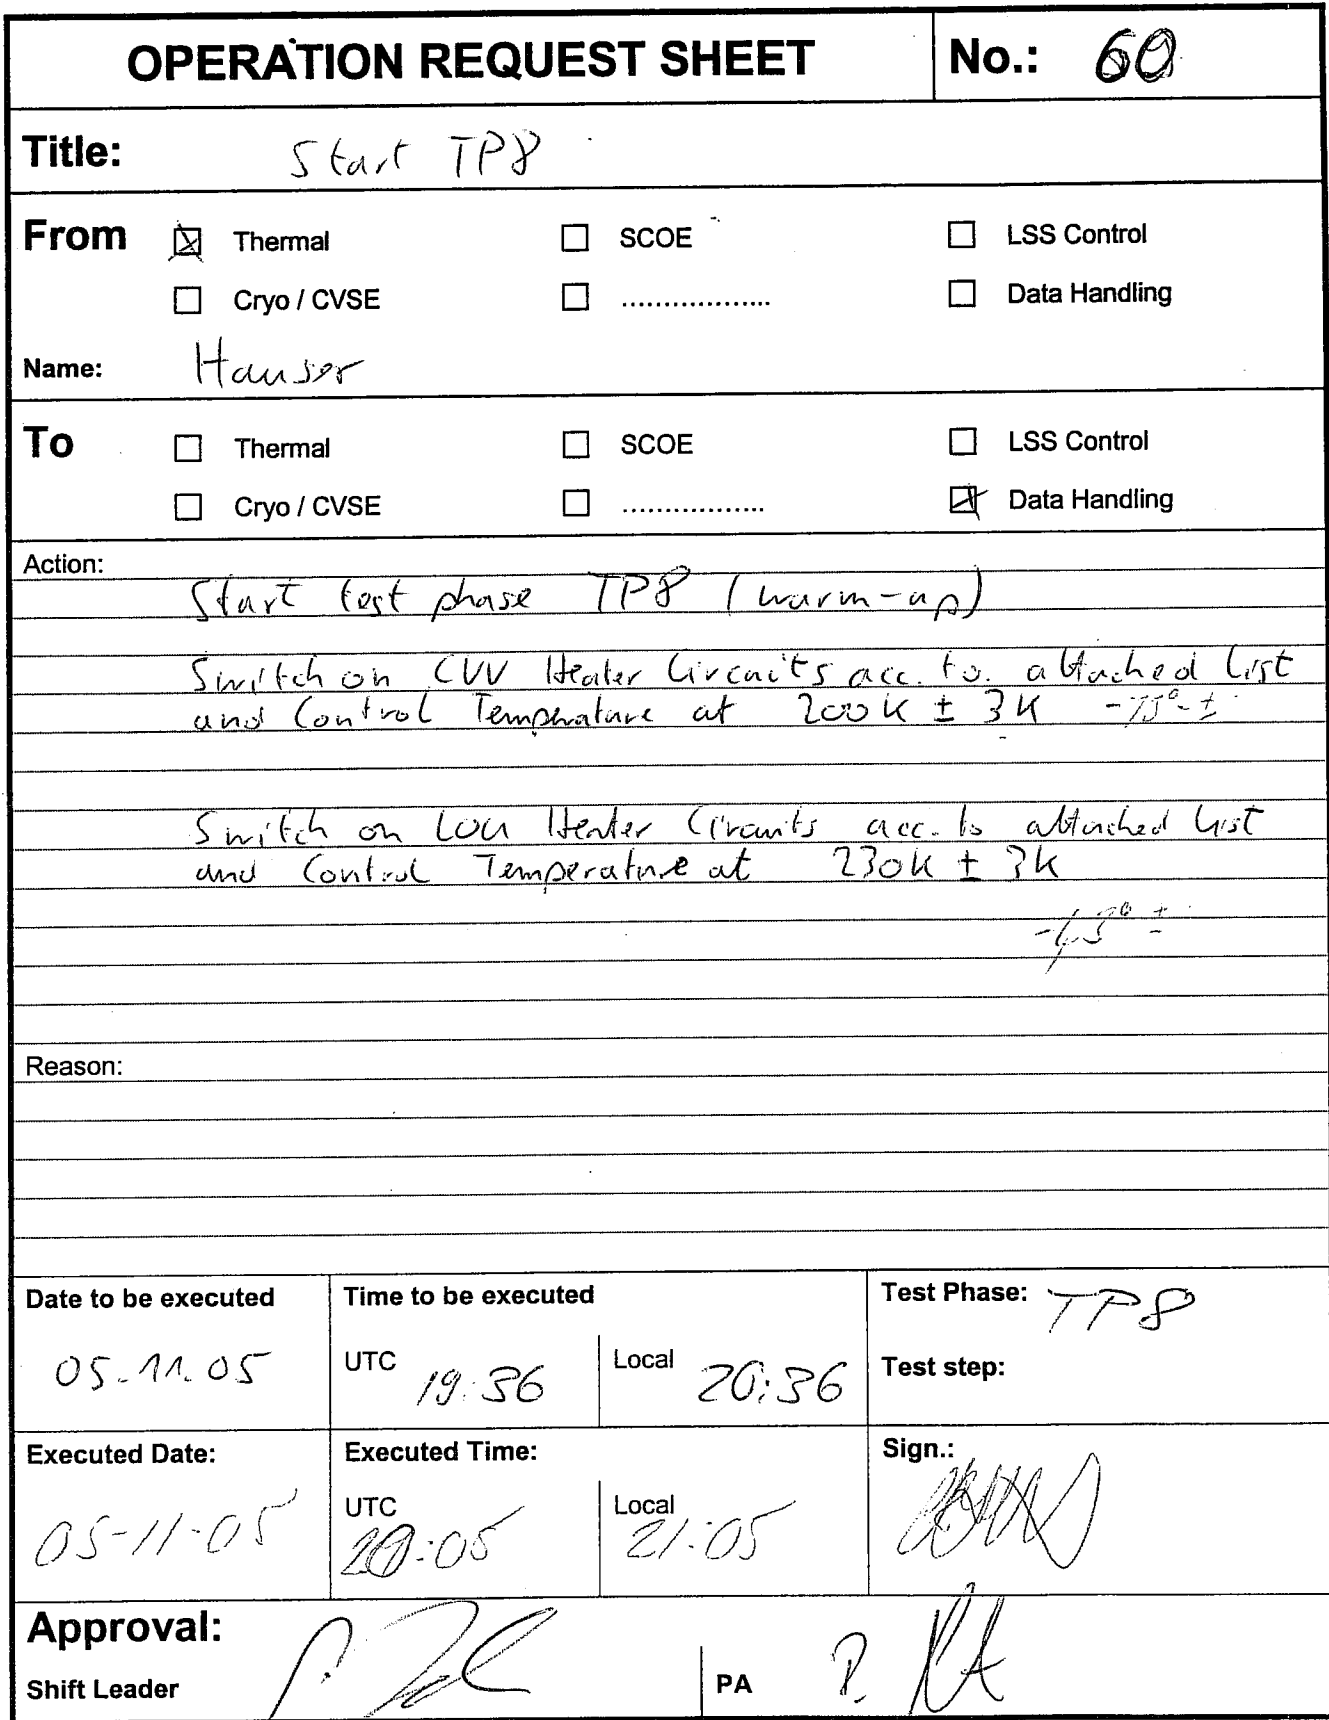 OPERATION REQUEST SHEET No.: 60
Title: Start TP8
From ☒ Thermal ☐ SCOE ☐ LSS Control
☐ Cryo / CVSE ☐ .................. ☐ Data Handling
Name: Hauser
To ☐ Thermal ☐ SCOE ☐ LSS Control
☐ Cryo / CVSE ☐ ................. ☒ Data Handling
Action:
Start test phase TP8 (warm-up)
Switch on CVV Heater Circuits acc. to. attached List
and Control Temperature at 200K ± 3K
Switch on LOU Heater Circuits acc. to attached List
and Control Temperature at 230K ± 3K
Reason:
Date to be executed Time to be executed Test Phase: TP8
05.11.05 UTC 19:36 Local 20:36 Test step:
Executed Date: Executed Time: Sign.:
05-11-05 UTC 20:05 Local 21:05
Approval:
Shift Leader PA